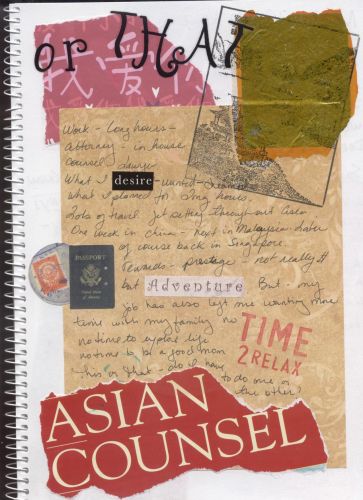 or THAT
我爱你
Work - long hours -
Attorney - in house
counsel lawyer
What I desire - wanted - dreamed
what I planned for. Long hours.
lots of travel. Jet setting throughout Asia
One week in China - next in Malaysia - later
of course back in Singapore.
Rewards - prestige not really $
but Adventure But my
job has also left me wanting more
time with my family no
no time to explore life
no time to be a good mom
this or that - do I have
to do one or
the other?
PASSPORT
United States
of America
TIME
2 RELAX
ASIAN
COUNSEL